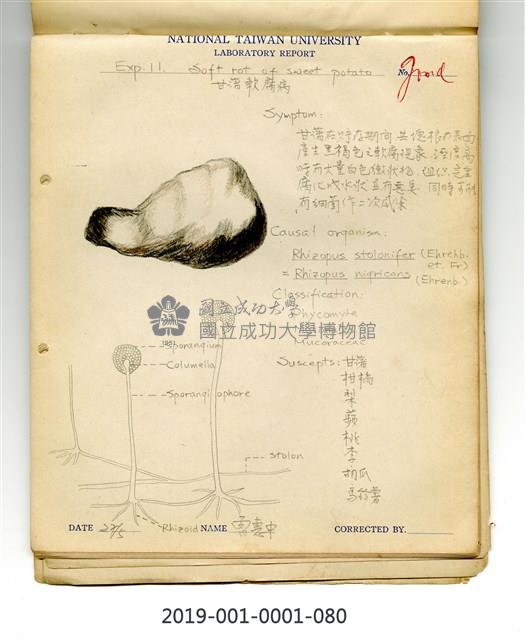 NATIONAL TAIWAN UNIVERSITY
LABORATORY REPORT
Exp. 11. Soft rot of sweet potato No. Good
甘藷軟腐病
Symptom:
甘藷在貯存期間,其塊根的表面
產生黑褐色之軟腐現象,溼度高
時有大量白色黴狀物,組織完全
腐化成水狀並有惡臭,同時可能
有細菌作二次感染
Causal organism:
Rhizopus stolonifer (Ehrenb. et. Fr)
= Rhizopus nigricans (Ehrenb.)
Classification:
Phycomyte
Mucoraceae
國立成功大學
國立成功大學博物館
Sporangium
Columella
Sporangiophore
Suscepts: 甘藷
柑橘
梨
蘋
桃
李
胡瓜
馬鈴薯
stolon
Rhizoid
DATE 22/5 NAME CORRECTED BY.
2019-001-0001-080